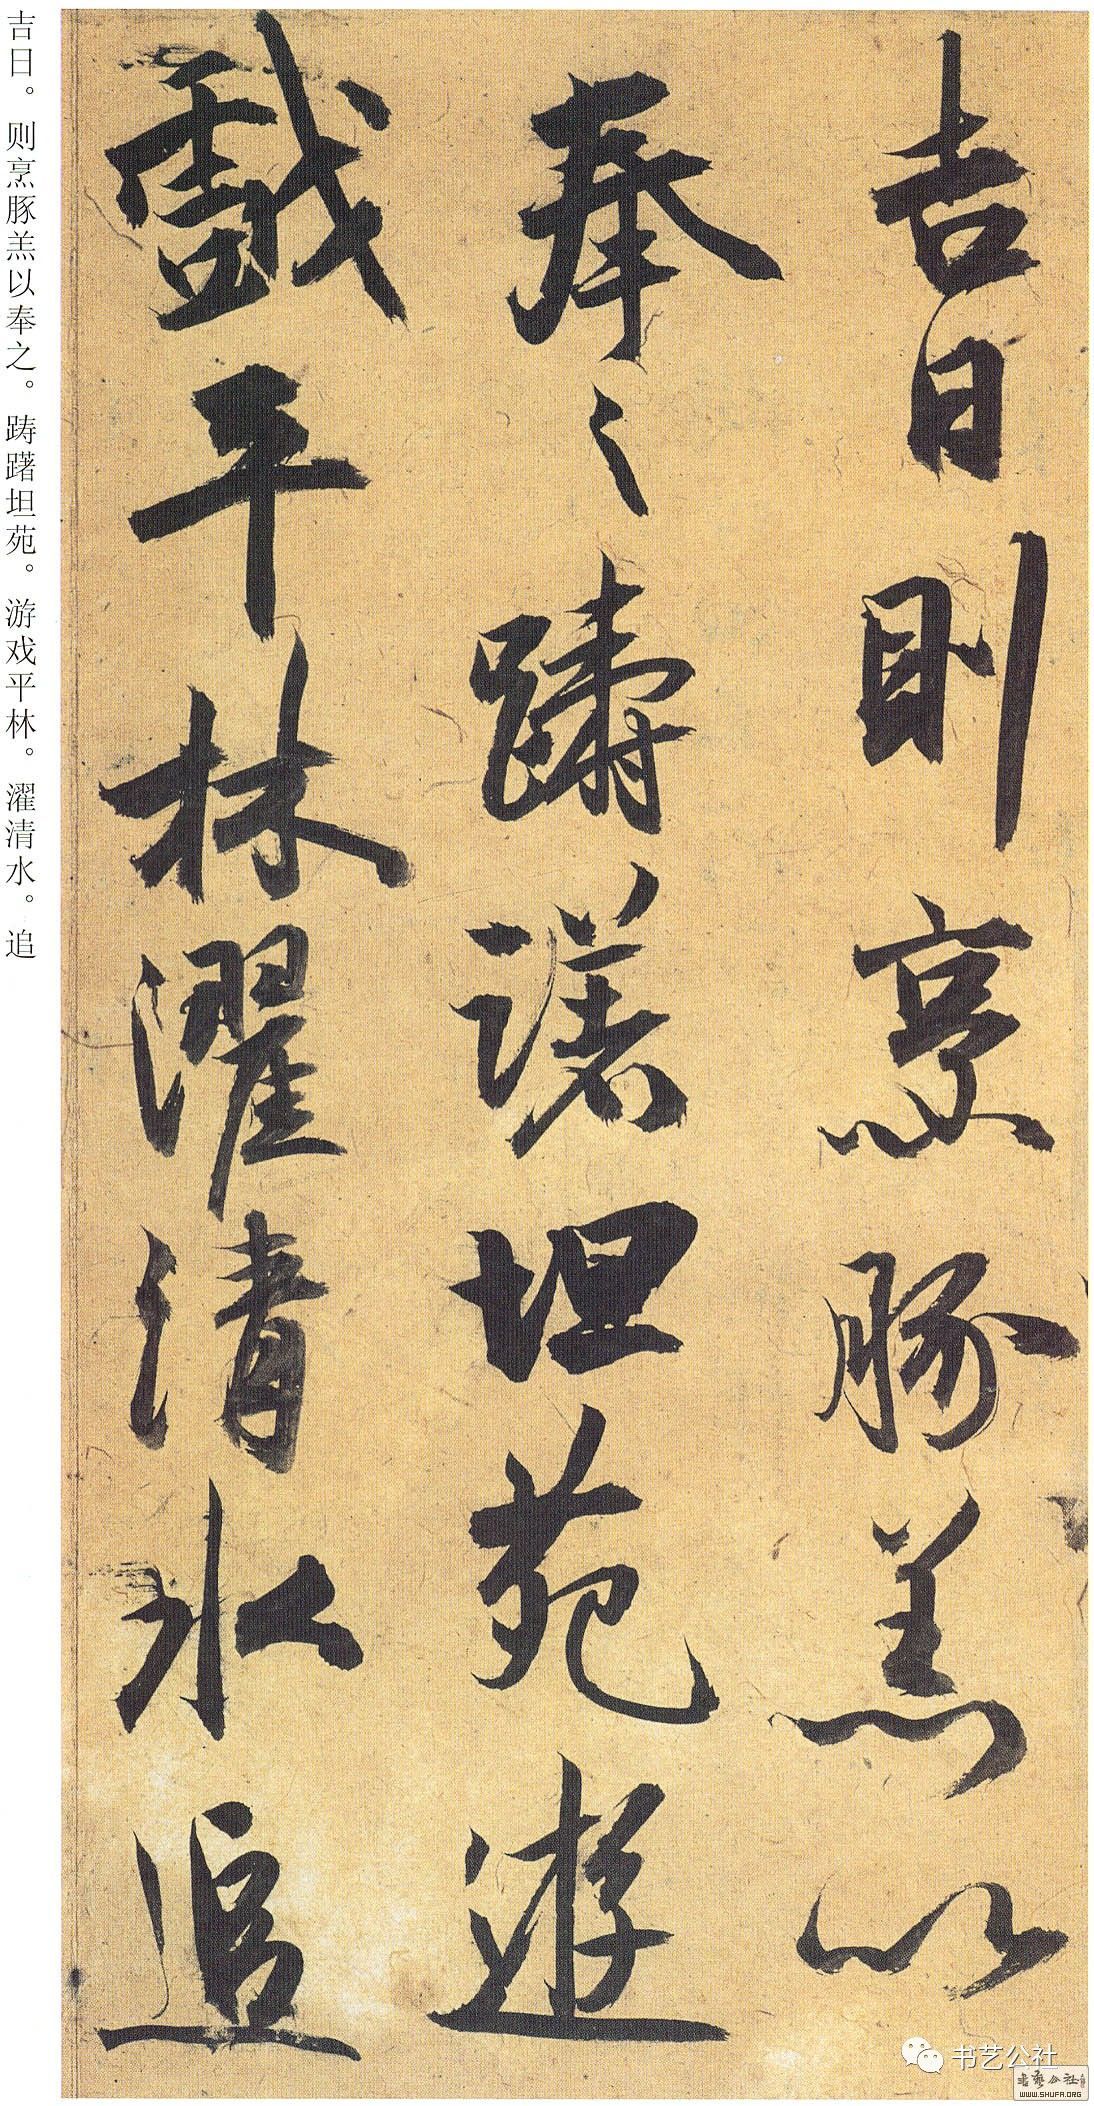 吉日則烹豚羔以
奉之蹰躇坦苑遊
戯平林濯清水追
吉日。则烹豚羔以奉之。踌躇坦苑。游戏平林。濯清水。追
书艺公社
书艺公社
WWW.SHUFA.ORG